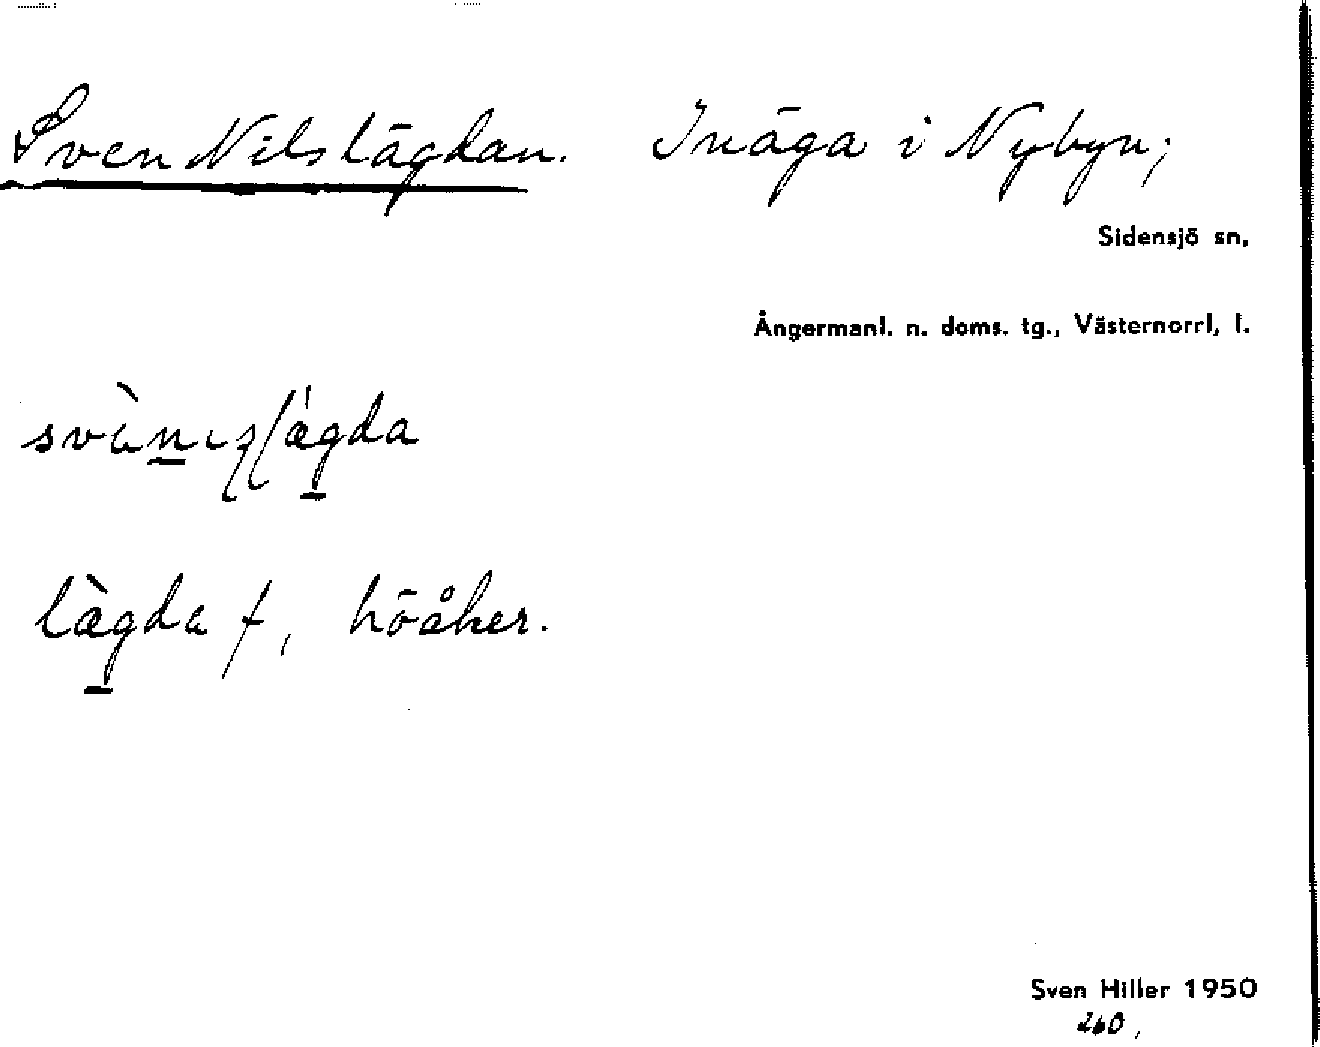 Sven Nilslägdan. Inäga i Nybyn;
Sidensjö sn,
Ångermanl. n. doms. tg., Västernorrl. l.
lägda f, höåker.
Sven Hiller 1950
260,